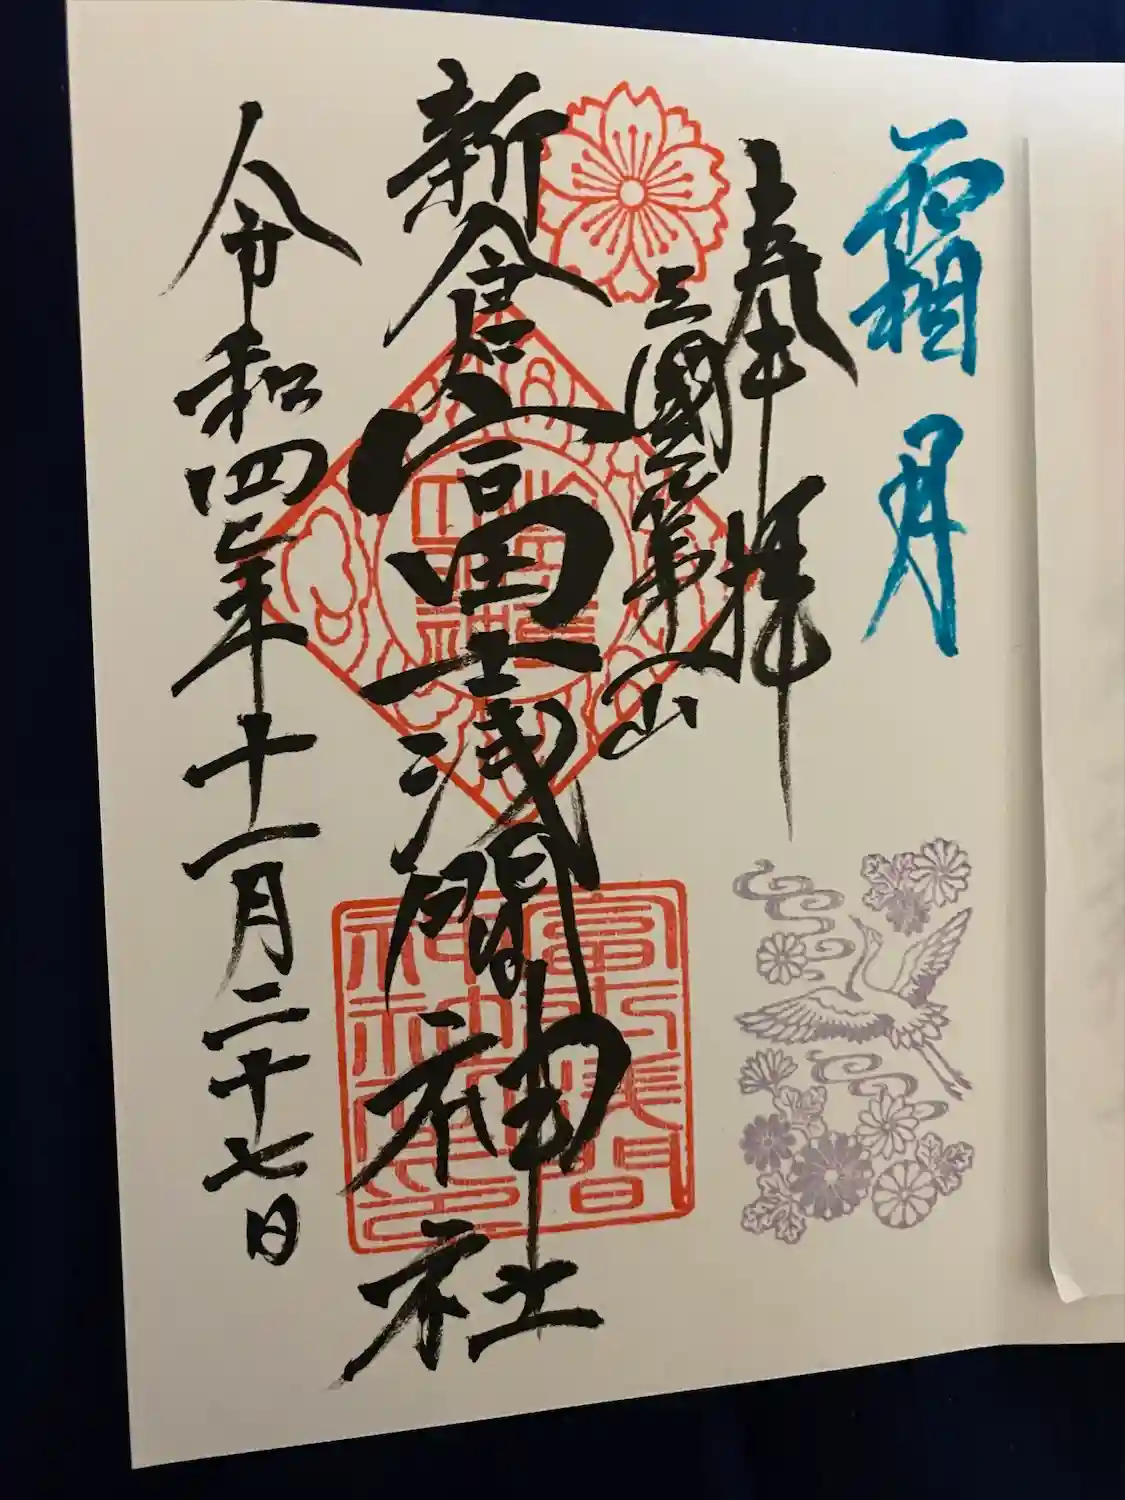 霜月
奉拝
三國第一山
新倉富士浅間神社
令和四年十一月二十七日
冨士浅間
神社之印